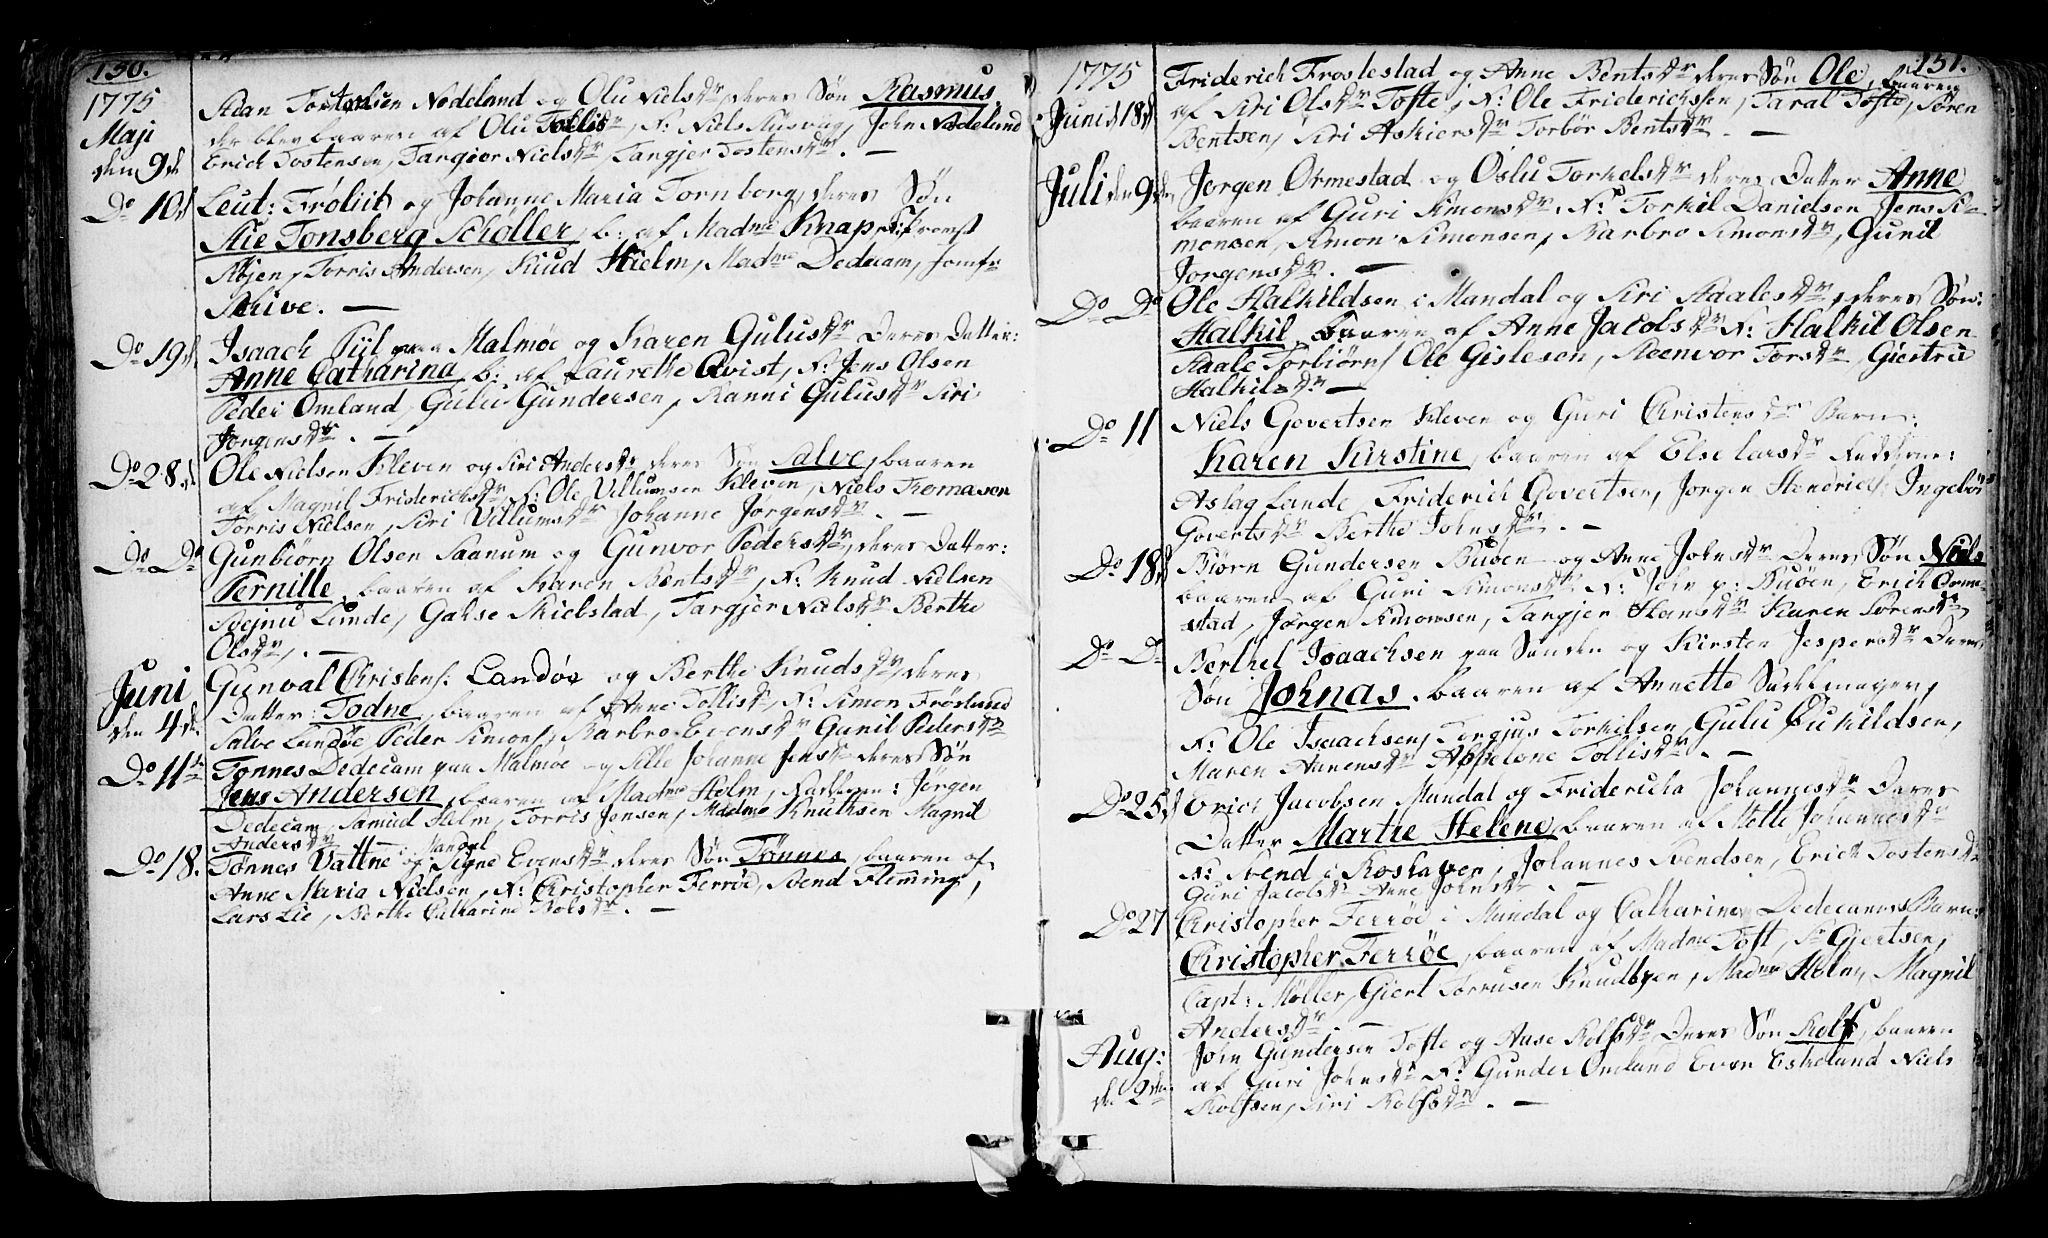 150.
1775
Maji
den 9de
Tostensen Nodeland og Olu Nielsdr, deres Søn Rasmus
der blev baaren af Olu Tollisdr, F: Niels John Nodeland
Erich Tostensen, Targier Nielsdr, Tangjer Tostensdr. —
Do 10de
Leut: og Johanne Maria Tornborg, deres Søn
Tonsberg Schøller, b: af Madme Knap,
Torris Andersen, Knud Hielm, Madme Dedecam, Jomfr
—
Do 19de
Isaach paa Malmøe og Karen Gulusdr Deres Datter:
Anne Catharina, b: af Laurethe Qvist, F: Jens Olsen
Peder Omland, Gulu Gundersen, Ranni Gulusdr Siri
Jorgensdr. —
Do 28de
Ole Nielsen Kleven og Siri Andersdr deres Søn Salve, baaren
af Magnil Friderichsdr F: Ole Villumsen Kleven, Niels Tomasen
Torris Nielsen, Siri Villumsdr Johanne Jorgensdr. —
Do Do
Gunbiørn Olsen Saanum og Gunvor Pedersdr, deres Datter:
Pernille, baaren af Karen Bentsdr, F: Knud Nielsen
Svejnu Lunde, Gahse Skiebstad, Targjer Nielsdr Berthe
Olsdr, —
Juni
den 4de
Gunval Christens: Landøe og Berthe Knudsdr, deres
Datter: Todne, baaren af Anne Tollisdr, F: Simon
Salve Landøe Peder Simons, Barbro Evensdr Gunil Pedersdr
Do 11te
Tønnes Dedecam paa Malmøe og Sille Johanne Jensdr deres Søn
Jens Andersen, baaren af Madme Holm, Fadderne: Jørgen
Dedecam, Samuel Helm, Torris Jensen, Madme Knuthsen Magnil
Andersdr —
Do 18.
Tønnes Vattne i Mandal og Signe Evensdr deres Søn Tønnes, baaren af
Anne Maria Nielsen, F: Christopher Ferrøe, Svend Fleming,
Lars Lie, Berthe Catharine —
151.
1775
Juni d 18de
Friderich Frostestad og Anne Bentsdr deres Søn Ole, baaren
af Siri Olsdr Tofte, F: Ole Friderichssen, Taral Tofte, Søren
Bentsen, Siri Askiersdr Torbør Bentsdr. —
Juli den 9de
Jorgen Ormestad og Oslu Torkelsdr deres Datter Anne
baaren af Guri Simonsdr, F: Torkil Danielsen Jens Si-
monsen, Simon Simonsen, Barbro Simonsdr, Gunil
Jorgensdr. —
Do Do
Ole Halkildsen i Mandal og Siri Staalesdr, deres Søn:
Halkil, baaren af Anne Jacobsdr F: Halkil Olsen
Staale Torbiørns Ole Gislesen, Roenvor Torsdr, Giertru
Halkilsdr —
Do 11
Niels Govertsen Kleven og Guri Christensdr Barn:
Karen Kirstine, baaren af Else Larsdr Fadderne:
Aslag Lande, Friderich Govertsen, Jorgen Hendrichs: Ingebør
Govertsdr Berthe Johnsdr. —
Do 18de
Biørn Gundersen Buøen og Anne Johnsdr Deres Søn Niels
baaren af Guri Simonsdr F: John p: Buøen, Erich Orme-
stad, Jørgen Simonsen, Tangjer Hansdr Karen Sorensdr
Do Do
Berthel Isaachsen paa Sanden og Kirsten Jespersdr Deres
Søn Johnas. baaren af Annette Sadelmager,
F: Ole Isaachsen, Torgjus Torkilsen, Gulu Øukildsen,
Maren Anensdr Appelone Tollisdr. —
Do 25de
Erich Jacobsen Mandal og Friderica Johannesdr Deres
Datter Marthe Helene, baaren af Mette Johannesdr
F: Svend i Roshaven, Johannes Svendsen, Erich Tostensdr
Guri Jacobsdr Anne Johnsdr. —
Do 27
Christopher Ferrøe i Mandal og Catharine Dedecams Barn:
Christopher Ferrøe, baaren af Madme Toft, Gjertsen,
Capt: Møller, Giert Knudtzen, Madme Holm, Magnil
Andersdr —
Aug:
den 2den
John Gundersen Tofte og Aase Rolfsdr Deres Søn Rolf, baaren
af Guri Johnsdr F: Gunder Omland Even Eskeland Niels
Rolfsen, Siri Rolfsdr. —